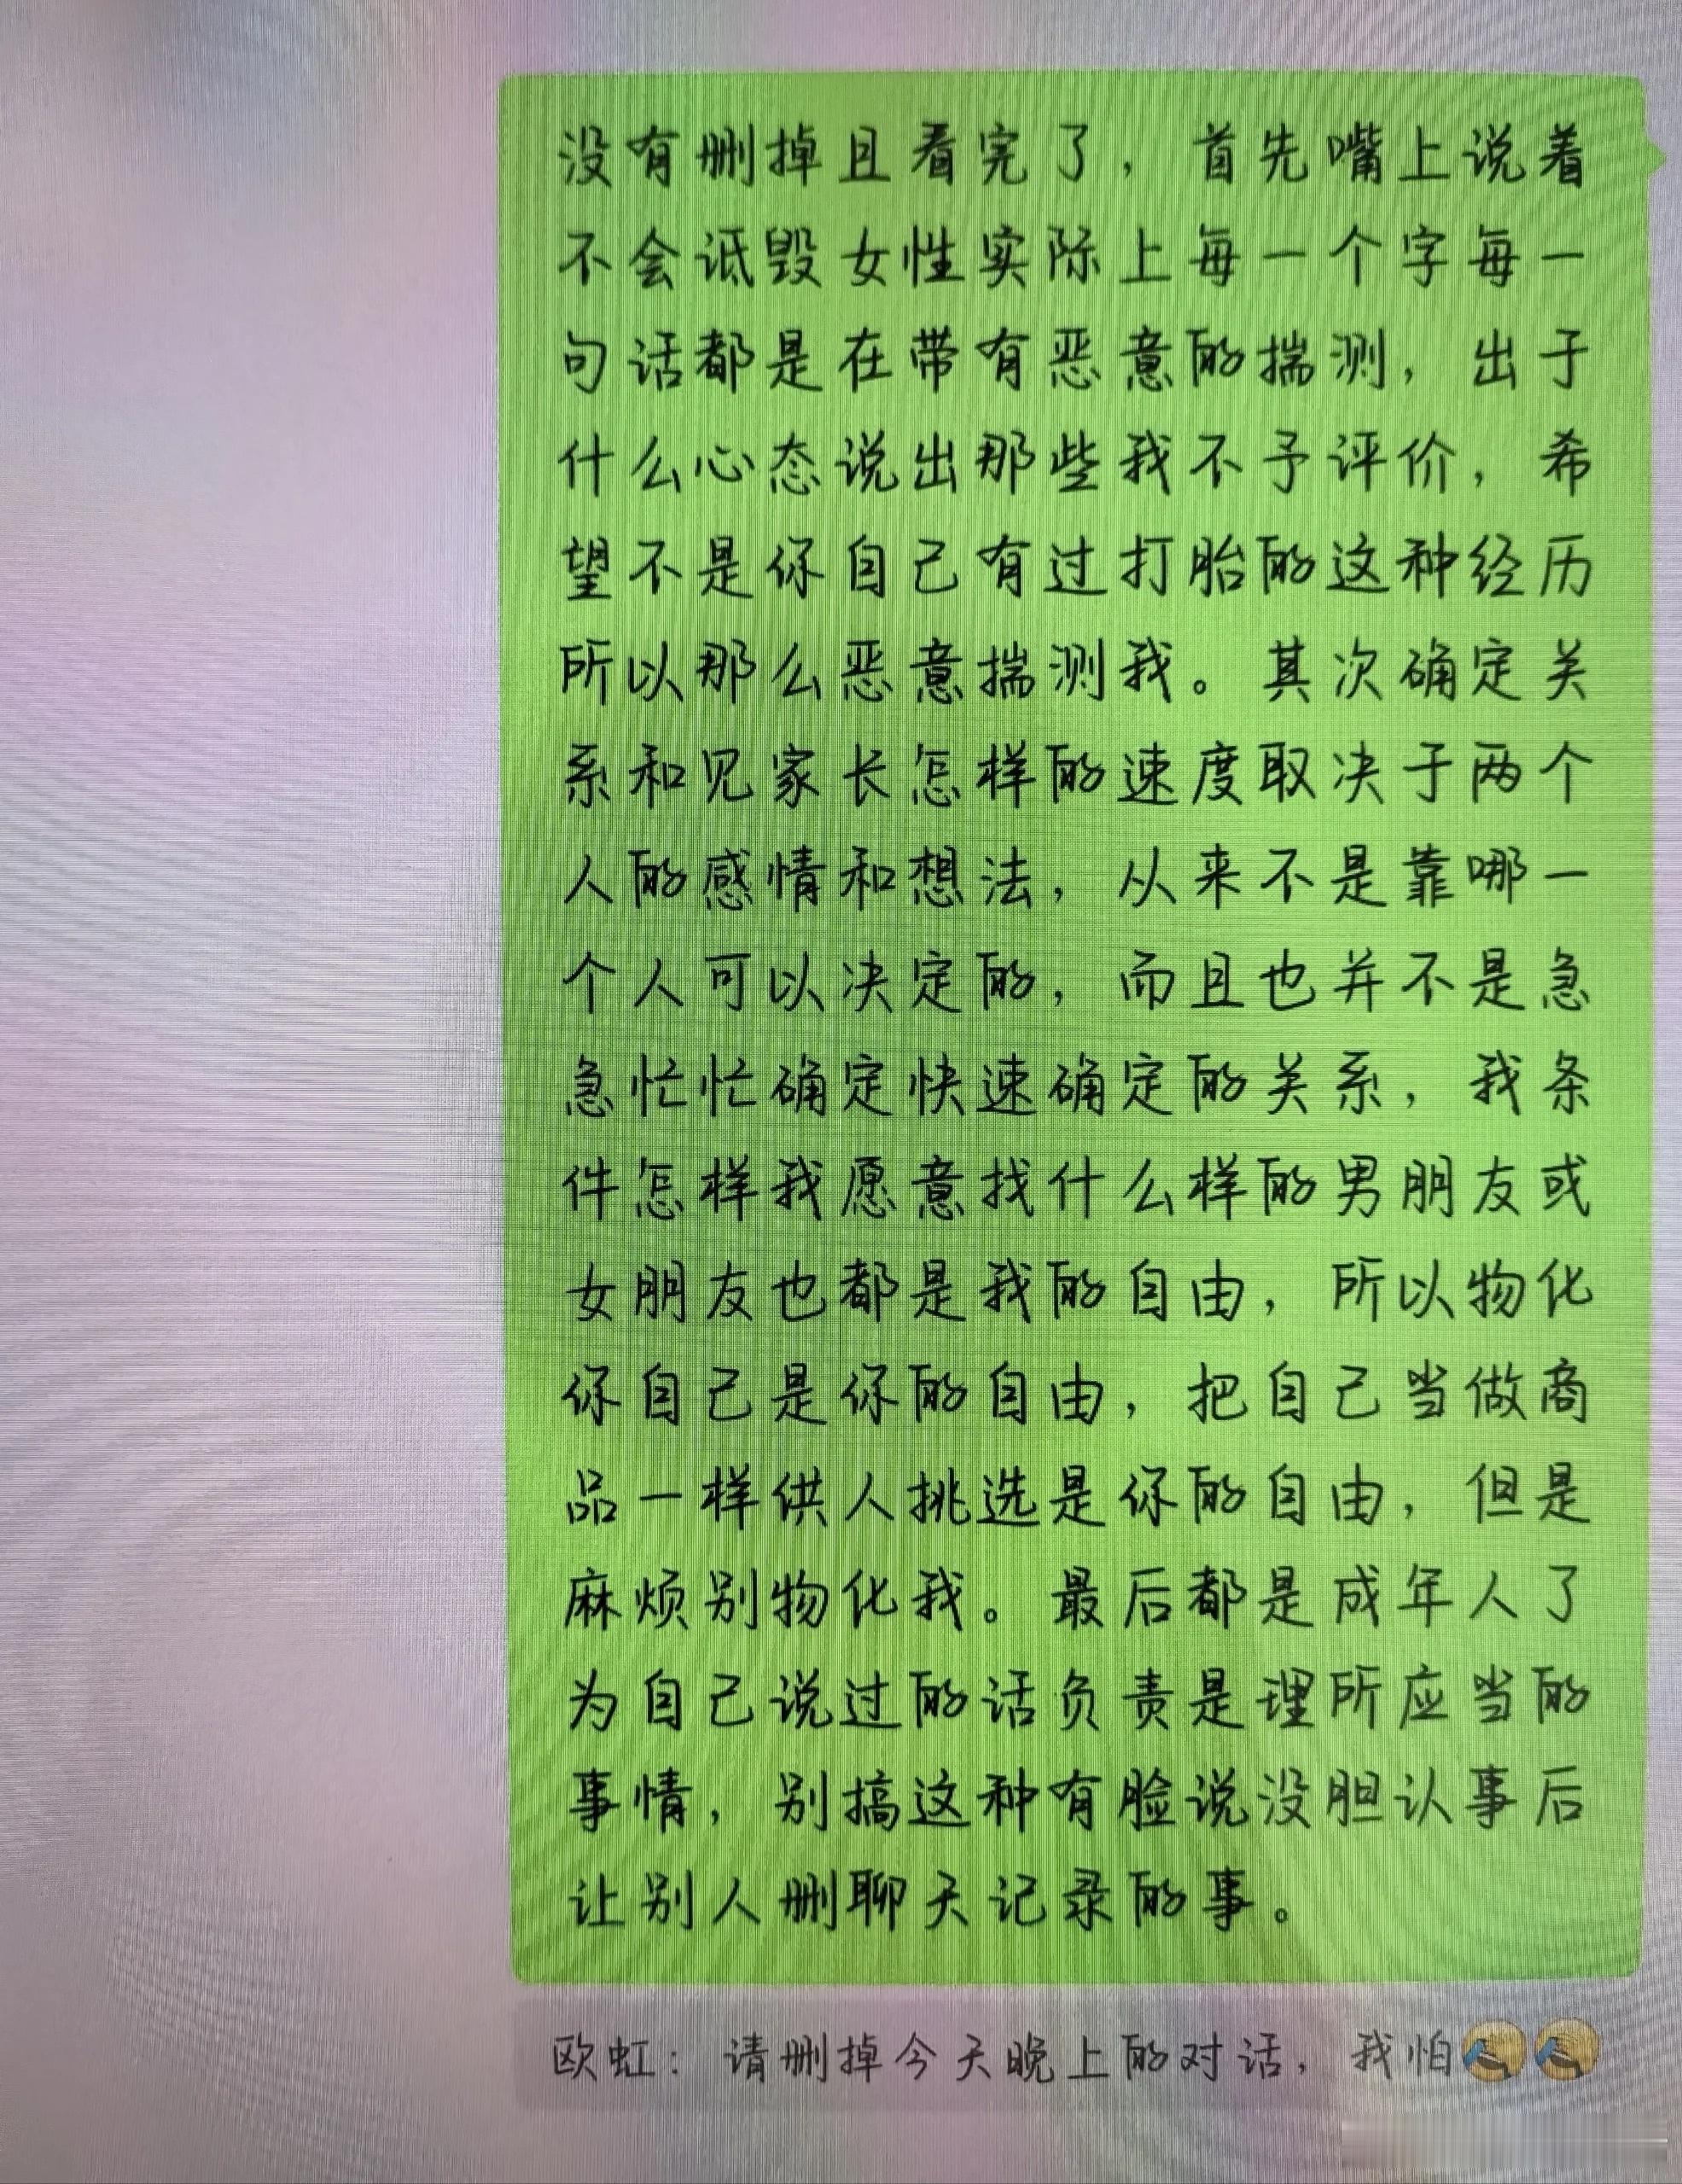 没有删掉且看完了，首先嘴上说着
不会诋毁女性实际上每一个字每一
句话都是在带有恶意的揣测，出于
什么心态说出那些我不予评价，希
望不是你自己有过打胎的这种经历
所以那么恶意揣测我。其次确定关
系和见家长怎样的速度取决于两个
人的感情和想法，从来不是靠哪一
个人可以决定的，而且也并不是急
急忙忙确定快速确定的关系，我条
件怎样我愿意找什么样的男朋友或
女朋友也都是我的自由，所以物化
你自己是你的自由，把自己当做商
品一样供人挑选是你的自由，但是
麻烦别物化我。最后都是成年人了
为自己说过的话负责是理所应当的
事情，别搞这种有脸说没胆认事后
让别人删聊天记录的事。
欧虹：请删掉今天晚上的对话，我怕